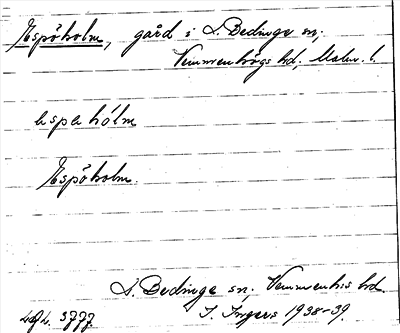 Äspöholm, gård i L. Bedinge sn,
Vemmenhögs hd, Malm. l.
espehólm
Äspöholm.
L. Bedinge sn, Vemmenhs hd.
I. Ingers 1938-39
3777